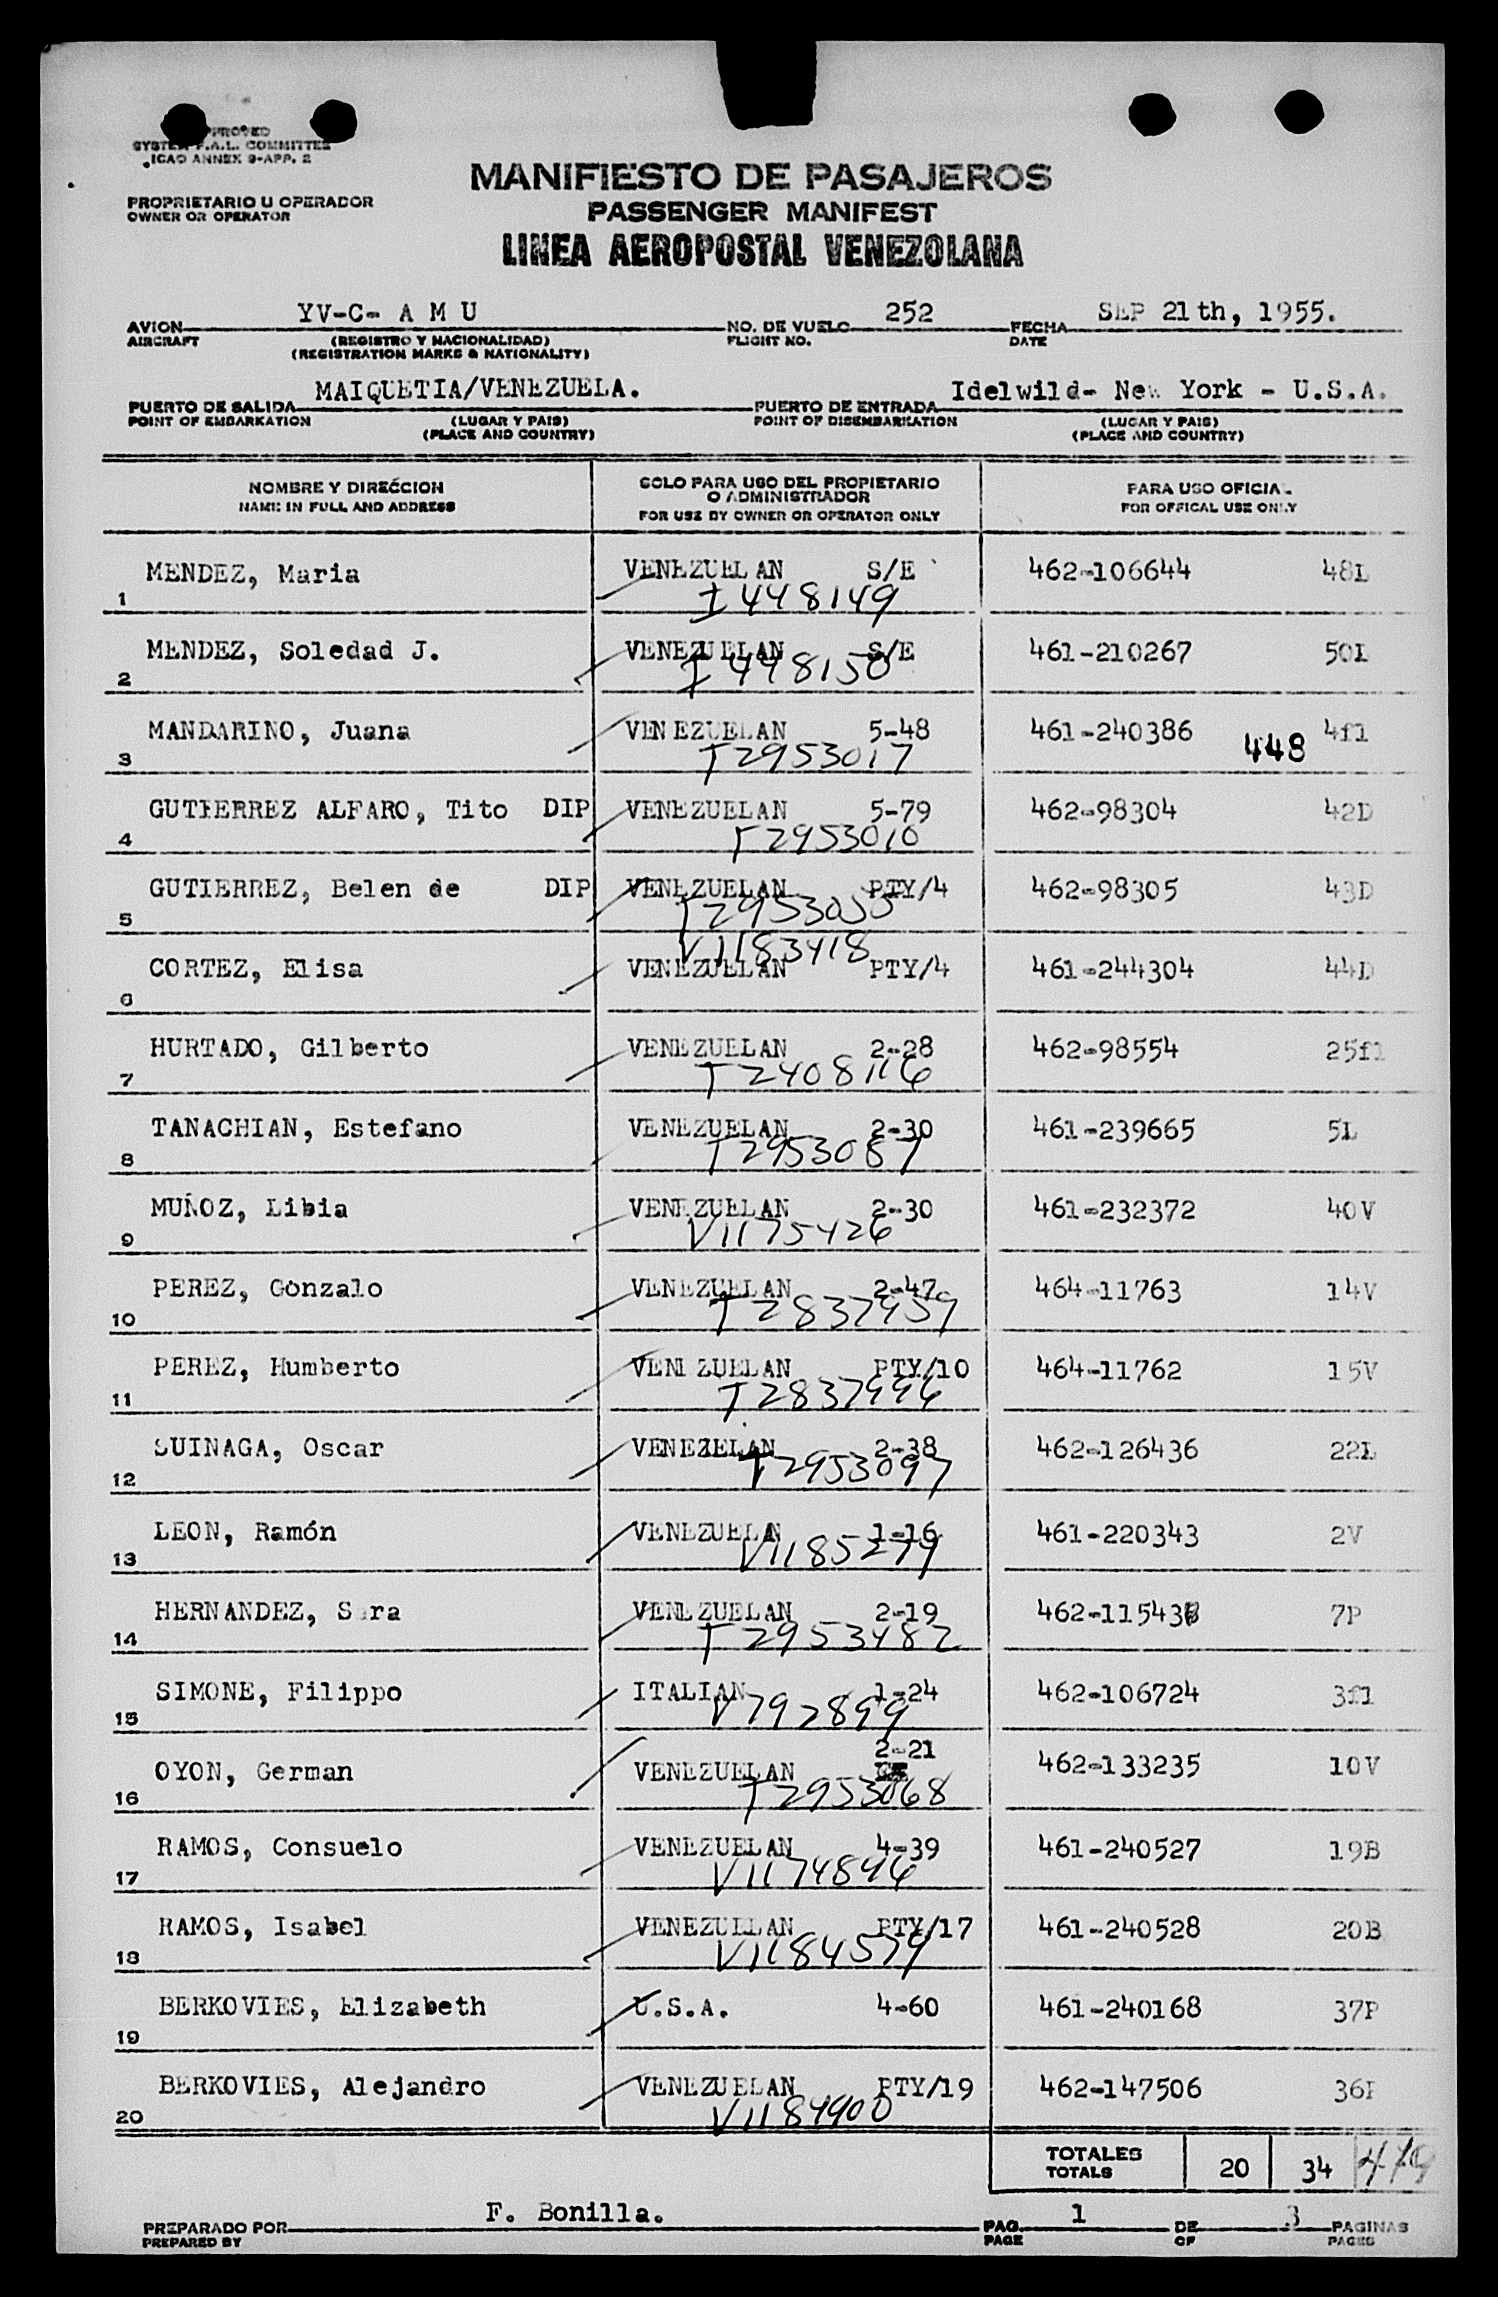 SYSTEM F.A.L. COMMITTEE
ICAO ANNEX 9-APP. 2
PROPRIETARIO U OPERADOR
OWNER OR OPERATOR
MANIFIESTO DE PASAJEROS
PASSENGER MANIFEST
LINEA AEROPOSTAL VENEZOLANA
AVION YV-C- A M U NO. DE VUELO 252 FECHA SEP 21th, 1955.
AIRCRAFT (REGISTRO Y NACIONALIDAD) FLIGHT NO. DATE
(REGISTRATION MARKS & NATIONALITY)
PUERTO DE SALIDA MAIQUETIA/VENEZUELA. PUERTO DE ENTRADA Idelwild- New York - U.S.A.
POINT OF EMBARKATION (LUGAR Y PAIS) POINT OF DISEMBARKATION (LUGAR Y PAIS)
(PLACE AND COUNTRY) (PLACE AND COUNTRY)
NOMBRE Y DIRECCION SOLO PARA USO DEL PROPIETARIO O ADMINISTRADOR PARA USO OFICIAL
NAME IN FULL AND ADDRESS FOR USE BY OWNER OR OPERATOR ONLY FOR OFFICAL USE ONLY
1 MENDEZ, Maria VENEZUELAN S/E 462-106644 48L
I448149
2 MENDEZ, Soledad J. VENEZUELAN S/E 461-210267 50L
I448150
3 MANDARINO, Juana VENEZUELAN 5-48 461-240386 448 4fl
T2953017
4 GUTIERREZ ALFARO, Tito DIP VENEZUELAN 5-79 462-98304 42D
T2953010
5 GUTIERREZ, Belen de DIP VENEZUELAN PTY/4 462-98305 43D
T2953050
V1183418
6 CORTEZ, Elisa VENEZUELAN PTY/4 461-244304 44D
7 HURTADO, Gilberto VENEZUELAN 2-28 462-98554 25fl
T2408116
8 TANACHIAN, Estefano VENEZUELAN 2-30 461-239665 5L
T2953087
9 MUÑOZ, Libia VENEZUELAN 2-30 461-232372 40V
V1175426
10 PEREZ, Gonzalo VENEZUELAN 2-47 464-11763 14V
T2837959
11 PEREZ, Humberto VENEZUELAN PTY/10 464-11762 15V
T2837996
12 SUINAGA, Oscar VENEZELAN 2-38 462-126436 22L
T2953097
13 LEON, Ramón VENEZUELN 1-16 461-220343 2V
V1185279
14 HERNANDEZ, Sara VENEZUELAN 2-19 462-11543 7P
T2953482
15 SIMONE, Filippo ITALIAN 1-24 462-106724 3fl
V792899
2-21
16 OYON, German VENEZUELAN 462-133235 10V
T2953068
17 RAMOS, Consuelo VENEZUELAN 4-39 461-240527 19B
V1174896
18 RAMOS, Isabel VENEZUELAN PTY/17 461-240528 20B
V1184579
19 BERKOVIES, Elizabeth U.S.A. 4-60 461-240168 37P
20 BERKOVIES, Alejandro VENEZUELAN PTY/19 462-147506 36P
V1184900
TOTALES 20 34 479
TOTALS
PREPARADO POR F. Bonilla. PAG. 1 DE 3 PAGINAS
PREPARED BY PAGE OF PAGES